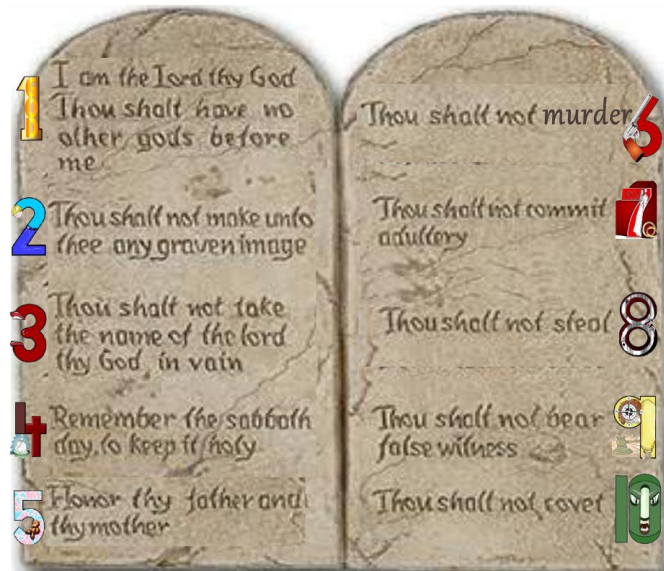 1
I am the Lord thy God
Thou shalt have no
other gods before
me
2
Thou shalt not make unto
thee any graven image
3
Thou shalt not take
the name of the lord
thy God in vain
4
Remember the sabbath
day, to keep it holy
5
Honor thy father and
thy mother
Thou shalt not murder
6
Thou shalt not commit
adultery
7
Thou shalt not steal
8
Thou shalt not bear
false witness
9
Thou shalt not covet
10